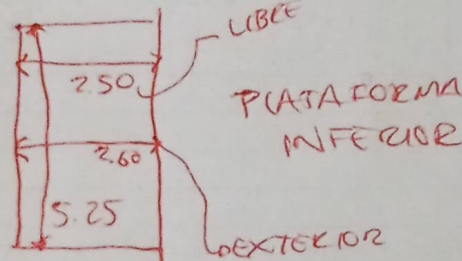 LIBRE
2.50
PLATAFORMA
INFERIOR
2.60
5.25
EXTERIOR